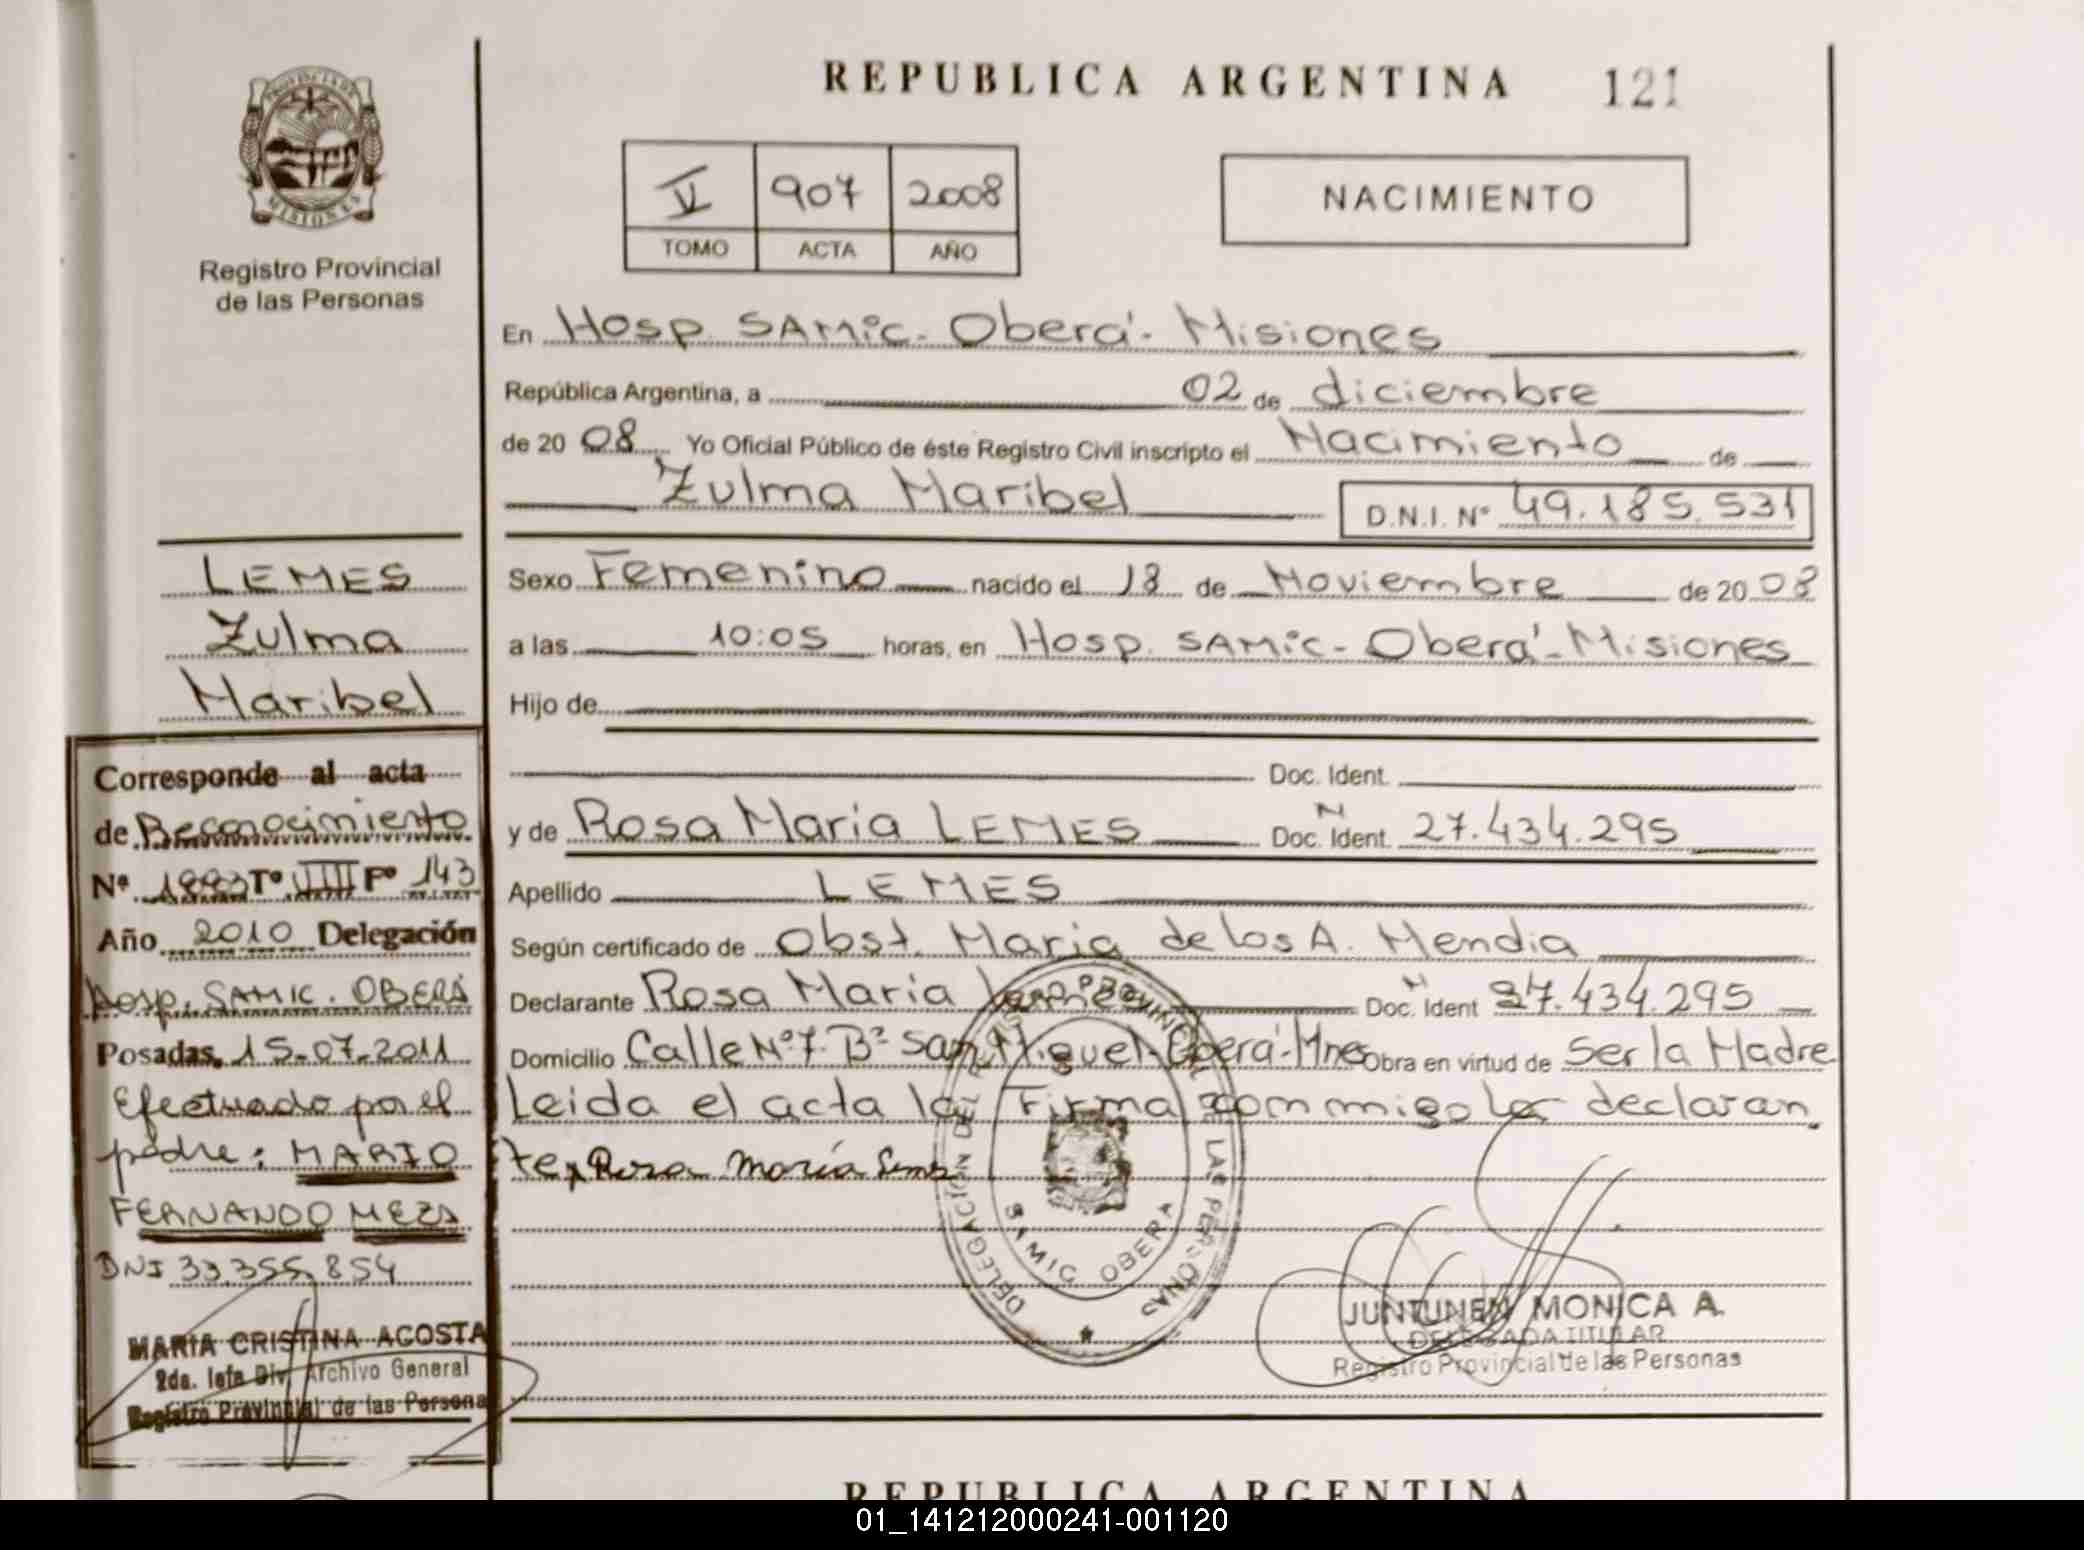 REPUBLICA ARGENTINA 121
PROVINCIA DE
MISIONES
Registro Provincial
de las Personas
V 907 2008
TOMO ACTA AÑO
NACIMIENTO
En Hosp. SAMic. Oberá - Misiones
República Argentina, a 02 de diciembre
de 20 08 Yo Oficial Público de éste Registro Civil inscripto el Nacimiento de
Zulma Maribel D.N.I. Nº 49.185.531
Sexo Femenino nacido el 18 de Noviembre de 20 08
a las 10:05 horas, en Hosp. SAMic - Oberá - Misiones
Hijo de
Doc. Ident.
y de Rosa Maria LEMES Doc. N Ident. 27.434.295
Apellido LEMES
Según certificado de Obst. Maria de los A. Mendia
Declarante Rosa Maria Lemes Doc. N Ident 27.434.295
Domicilio Calle Nº 7. Bº San Miguel - Oberá - Mnes Obra en virtud de Ser la Madre
Leida el acta la Firma commigo la declaran
te, Rosa María Lemes
LEMES
Zulma
Maribel
Corresponde al acta
de Reconocimiento
Nº 1993 Tº VIII Fº 143
Año 2010 Delegación
Hosp. SAMIC. OBERÁ
Posadas, 15-07-2011
Efectuado por el
padre: MARIO
FERNANDO MEZA
DNI 33.355.854
MARIA CRISTINA ACOSTA
2da. Jefa Div. Archivo General
Registro Provincial de las Persona
DELEGACIÓN DEL REGISTRO PROVINCIAL DE LAS PERSONAS
SAMIC OBERA
JUNTUNEN MONICA A.
DELEGADA TITULAR
Registro Provincial de las Personas
REPUBLICA ARGENTINA
01_141212000241-001120